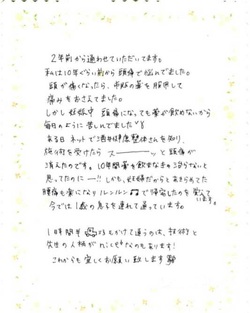 2年前から通わせていただいてます。
私は10年ぐらい前から頭痛で悩んでました。
頭が痛くなったら、市販の薬を服用して
痛みをおさえてました。
しかし妊娠中 頭痛になっても薬が飲めないから
毎日のように苦しんでました
ある日ネットで酒井健康整体さんを知り
施術を受けたら スーーーっと頭痛が
消えたのです。10年間薬を飲まなきゃ治らないと
思ってたのにー!! しかも、妊婦だからとあきらめてた
腰痛も楽になり ルンルン♫で帰宅したのを覚えています。
今では1歳の息子を連れて通っています。
1時間半 もかけて通うのは、技術と
先生の人柄が なのもあります!
これからも宜しくお願い致します